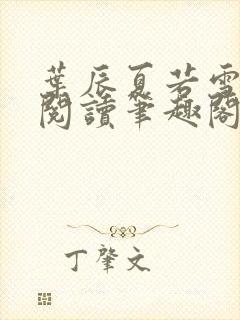 葉辰夏若雪
閱讀筆趣閣
丁肇文